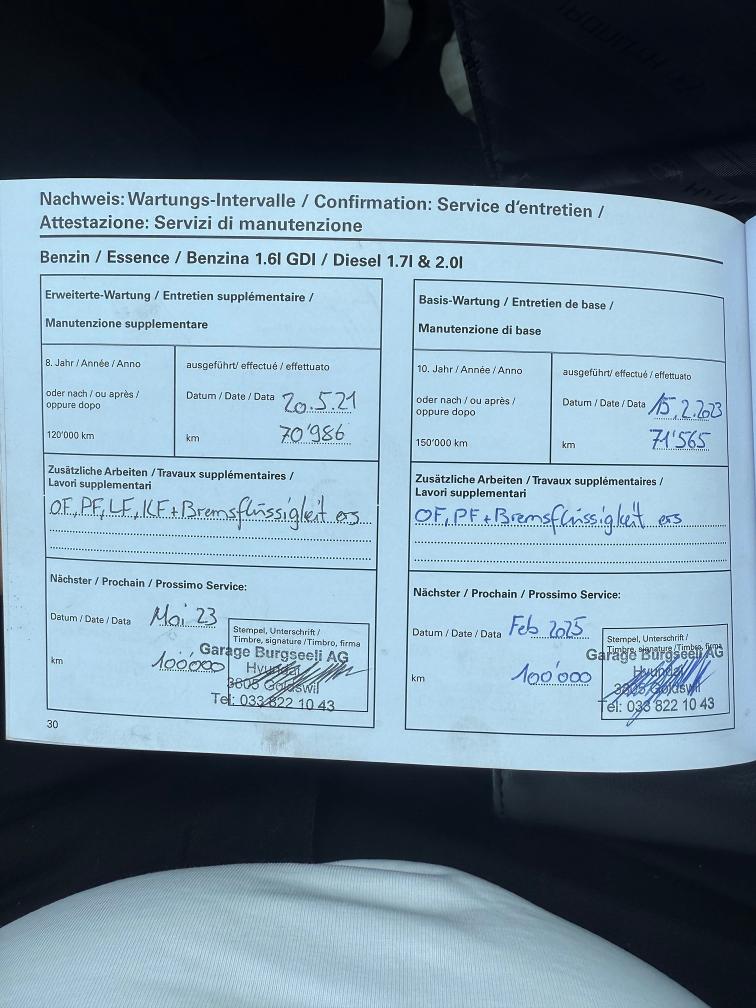 Nachweis: Wartungs-Intervalle / Confirmation: Service d'entretien /
Attestazione: Servizi di manutenzione
Benzin / Essence / Benzina 1.6l GDI / Diesel 1.7l & 2.0l
Erweiterte-Wartung / Entretien supplémentaire /
Manutenzione supplementare
8. Jahr / Année / Anno
oder nach / ou après /
oppure dopo
120'000 km
ausgeführt / effectué / effettuato
Datum / Date / Data 20.5.21
km 70'986
Zusätzliche Arbeiten / Travaux supplémentaires /
Lavori supplementari
OF, PF, LF, KF + Bremsflüssigkeit ers
Nächster / Prochain / Prossimo Service:
Datum / Date / Data Mai 23
km 100'000
Stempel, Unterschrift /
Timbre, signature / Timbro, firma
Garage Burgseeli AG
Hyundai
3805 Goldswil
Tel: 033 822 10 43
30
Basis-Wartung / Entretien de base /
Manutenzione di base
10. Jahr / Année / Anno
oder nach / ou après /
oppure dopo
150'000 km
ausgeführt/ effectué / effettuato
Datum / Date / Data 15.2.2023
km 71'565
Zusätzliche Arbeiten / Travaux supplémentaires /
Lavori supplementari
OF, PF + Bremsflüssigkeit ers
Nächster / Prochain / Prossimo Service:
Datum / Date / Data Feb 2025
km 100'000
Stempel, Unterschrift /
Timbre, signature / Timbro, firma
Garage Burgseeli AG
Hyundai
3805 Goldswil
Tel: 033 822 10 43